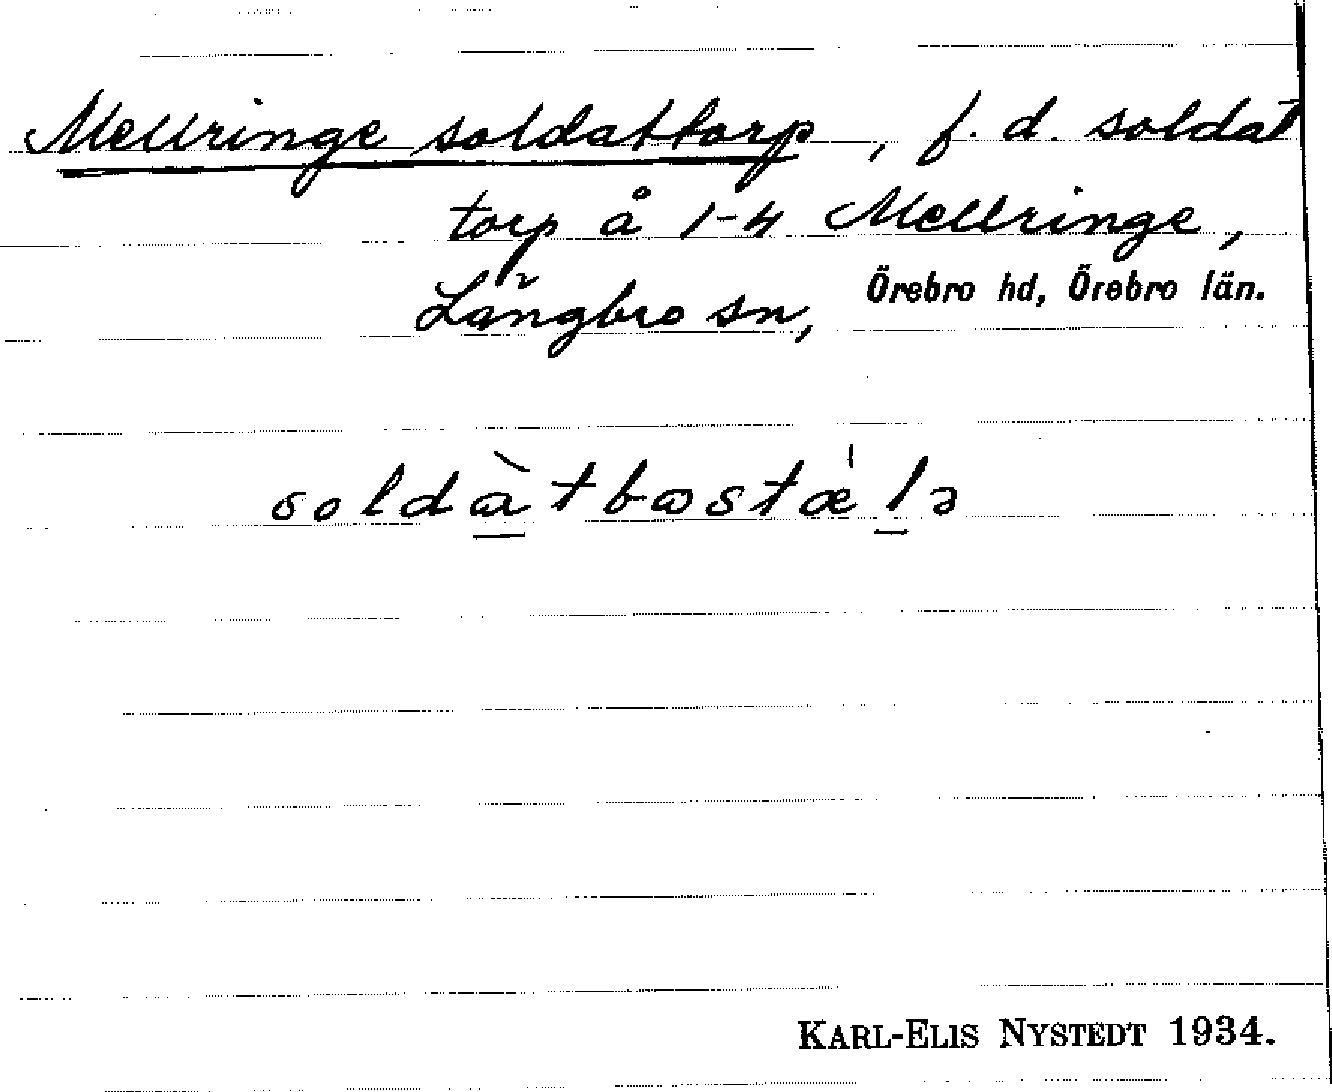 Mellringe soldattorp, f. d. soldat
torp å 1-4 Mellringe,
Längbro sn, Örebro hd, Örebro län.
soldàtbostæ̍lə
KARL-ELIS NYSTEDT 1934.